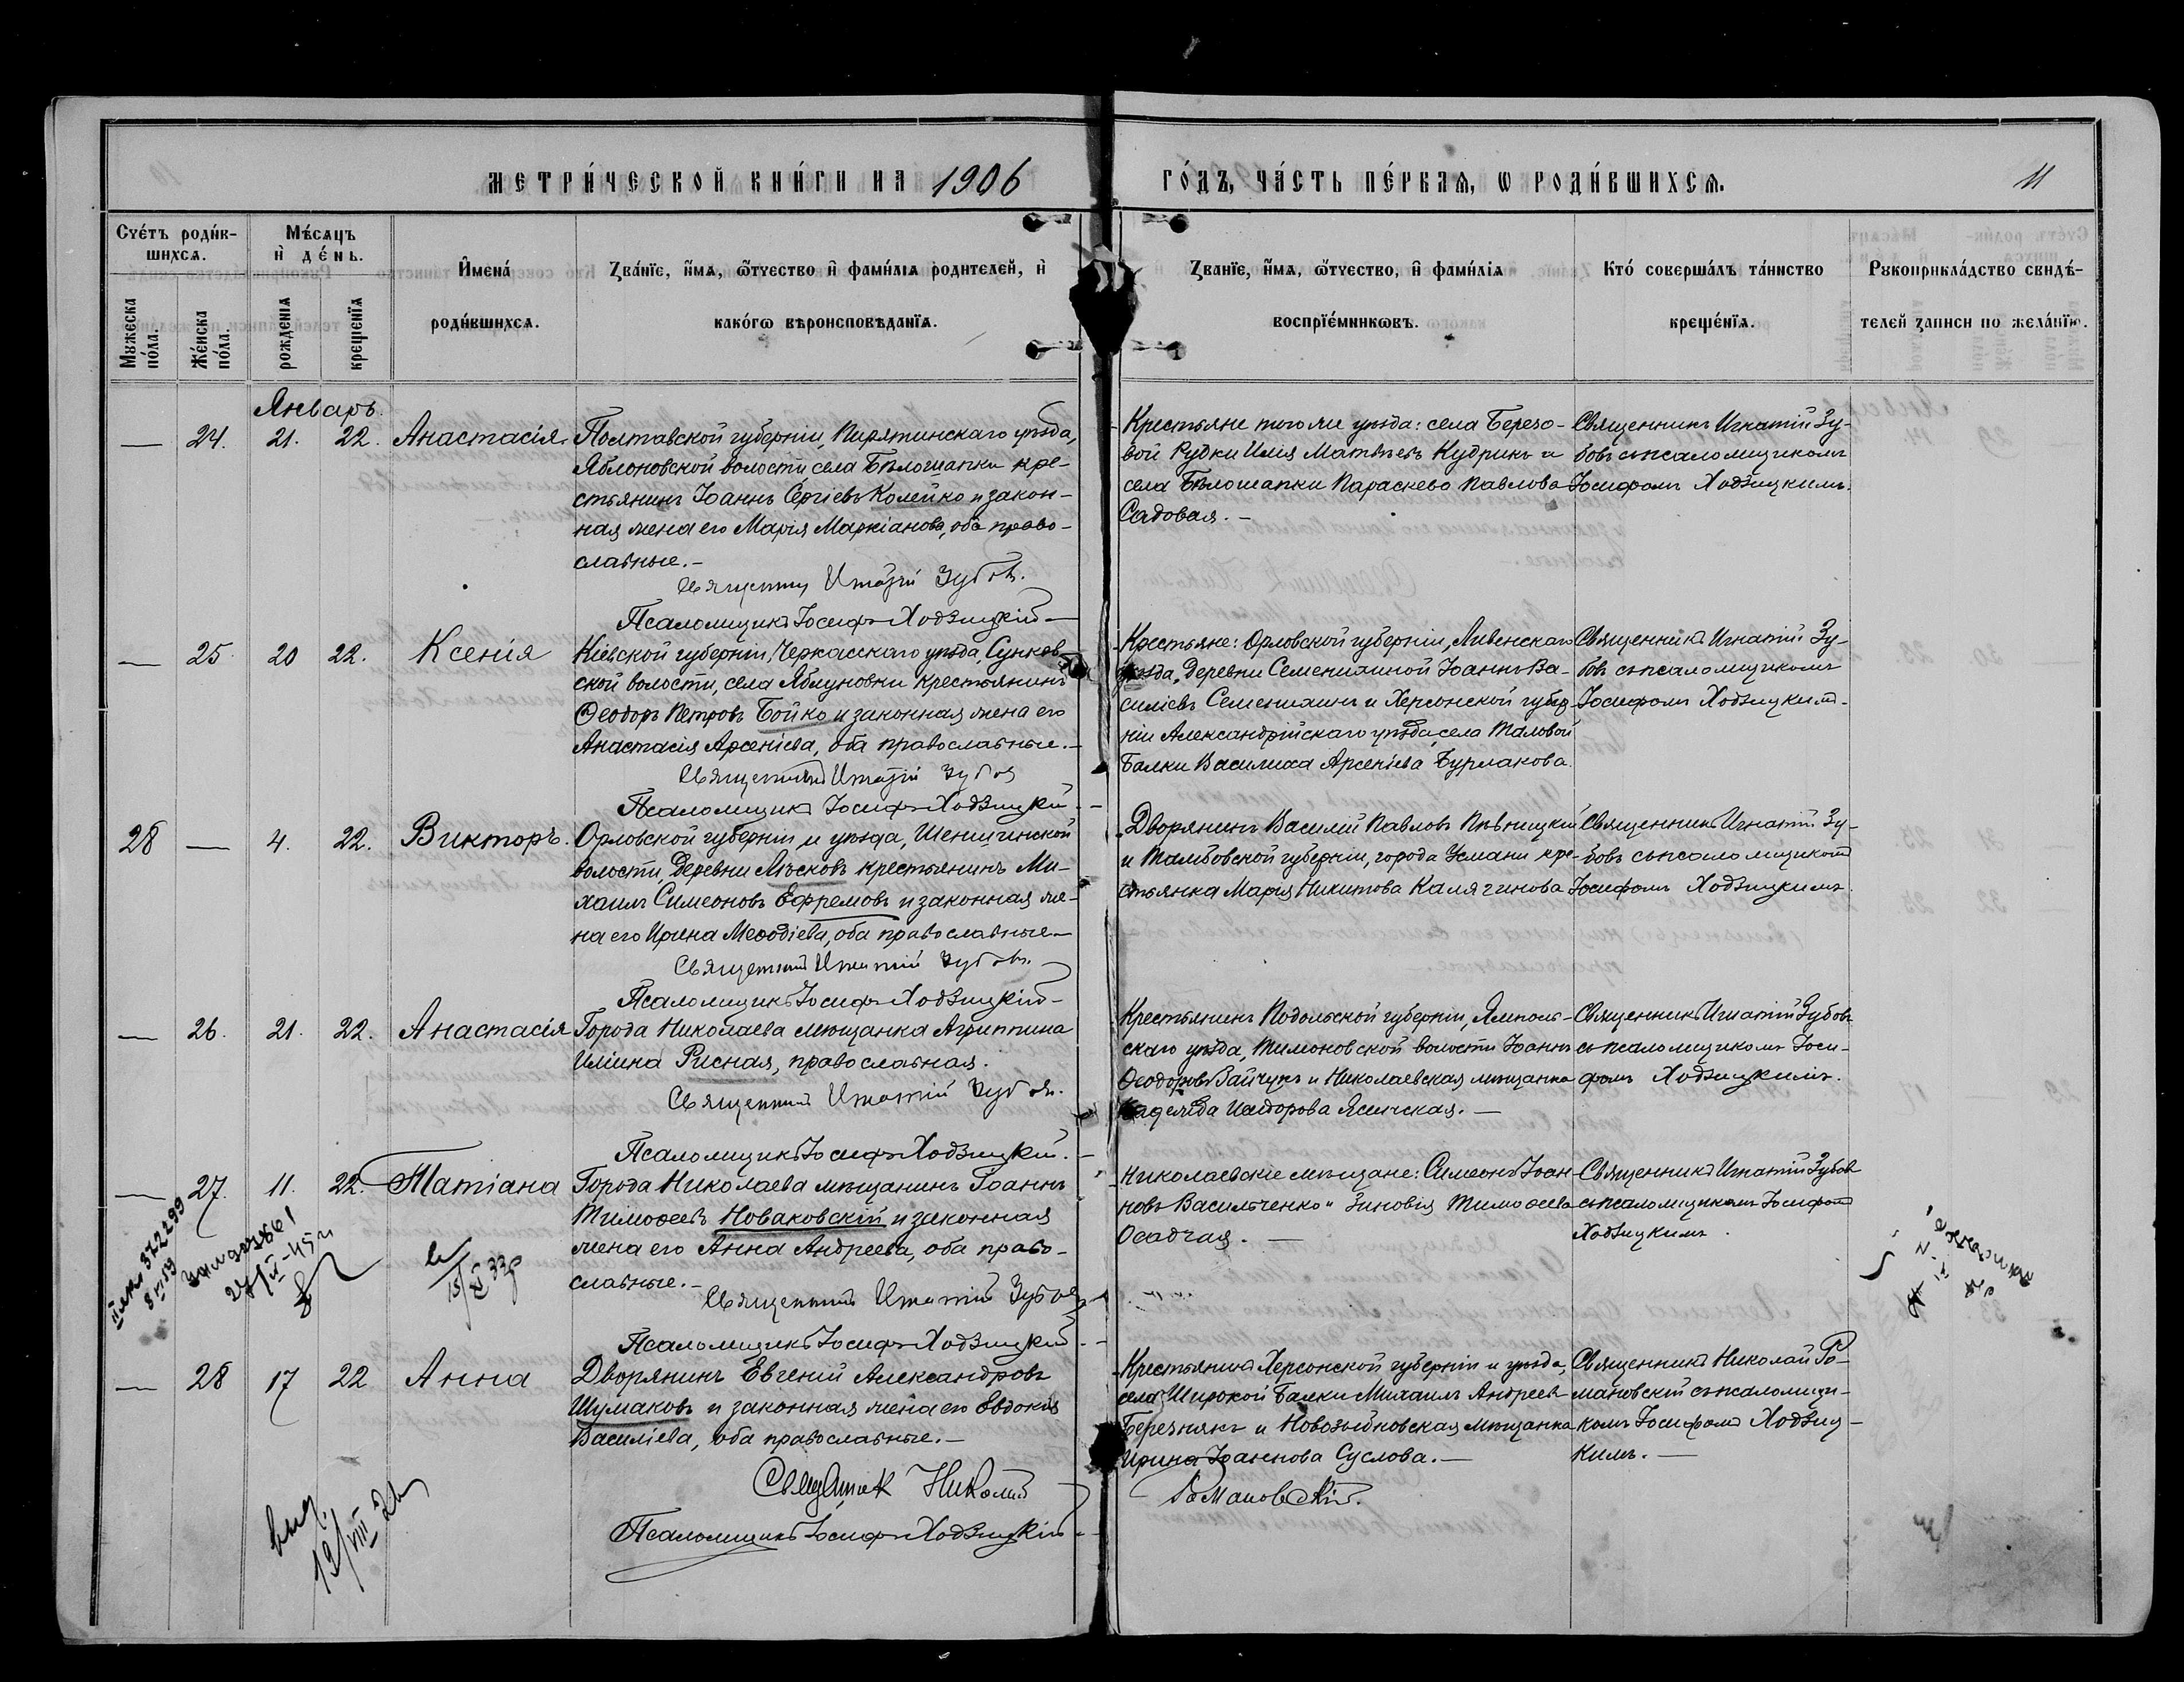 МЕТРИ́ЧЕСКОЙ КНИ́ГИ НА 1906 ГО́ДЪ, ЧА́СТЬ ПЕ́РВАѦ, Ѡ РОДИ́ВШИХСѦ. 11
Сче́тъ роди́в-
шихсѧ.
Мѣ́сѧцъ
и҆ де́нь.
Мꙋжеска по́ла.
Же́нска по́ла.
рожденїѧ
крещенїѧ
И҆мена́
роди́вшихсѧ.
Зва́нїе, и҆́мѧ, ѻ҆́тчество и҆ фами́лїѧ родителей, и҆
како́гѡ вѣроисповѣданїѧ.
Званїе, и҆́мѧ, ѻ҆́тчество, и҆ фами́лїѧ
воспрїе́мникѡвъ.
Кто́ соверша́лъ та́инство
креще́нїѧ.
Рꙋкоприкла́дство свидѣ́-
телей записи по жела́нїю.
Январь.
— 24. 21. 22. Анастасія
Полтавской губерніи, Пирятинскаго уѣзда,
Яблоновской волости села Бѣлошапки кре-
стьянинъ Іоаннъ Сергіевъ Колейко и закон-
ная жена его Марія Маркіанова, оба право-
славные. —
Священникъ Игнатій Зубовъ.
Псаломщикъ Іосифъ Ходзицкій —
Крестьяне того же уѣзда: села Березо-
вой Рудки Илія Матвѣевъ Кудрикъ и
села Бѣлошапки Параскева Павлова
Садовая. —
Священникъ Игнатій Зу-
бовъ съ псаломщикомъ
Іосифомъ Ходзицкимъ.
— 25 20 22. Ксенія
Кіевской губерніи, Черкасскаго уѣзда, Сунков-
ской волости, села Яблуновки крестьянинъ
Ѳеодоръ Петровъ Бойко и законная жена его
Анастасія Арсеніева, оба православные. —
Священникъ Игнатій Зубов
Псаломщикъ Іосифъ Ходзицкій —
Крестьяне: Орловской губерніи, Ливенскаго
уѣзда, Деревни Семенихиной Іоаннъ Ва-
силіевъ Семенихинъ и Херсонской губер-
ніи Александрійскаго уѣзда, села Таловой
Балки Василиса Арсеніева Бурлакова.
Священникъ Игнатій Зу-
бовъ съ псаломщикомъ
Іосифомъ Ходзицкимъ.
28 — 4. 22. Викторъ.
Орловской губерніи и уѣзда,
волости, Деревни крестьянинъ Ми-
хаилъ Симеоновъ Ефремовъ и законная же-
на его Ирина Меѳодіева, оба православные —
Священникъ Игнатій Зубовъ.
Псаломщикъ Іосифъ Ходзицкій —
Дворянинъ Василій Павловъ
и Тамбовской губерніи, города Усмани кре-
стьянка Марія Никитова Калягинова
Священникъ Игнатій Зу-
бовъ съ псаломщикомъ
Іосифомъ Ходзицкимъ.
— 26. 21. 22. Анастасія
Города Николаева мѣщанка Агриппина
Иліина Рисная, православная.
Священникъ Игнатій Зубов.
Псаломщикъ Іосифъ Ходзицкій. —
Крестьянинъ Подольской губерніи, Ямполь-
скаго уѣзда, волости Іоаннъ
Ѳеодоровъ Зайчукъ и Николаевская мѣщанка
Исидорова
Священникъ Игнатій Зубовъ
съ псаломщикомъ Іоси-
фомъ Ходзицкимъ.
— 27. 11. 22. Татіана
Города Николаева мѣщанинъ Іоаннъ
Тимоѳеевъ Новаковскій и законная
жена его Анна Андреева, оба право-
славные. —
Священникъ Игнатій Зубов
Псаломщикъ Іосифъ Ходзицкій —
Николаевскіе мѣщане: Симеонъ Іоан-
новъ Васильченко и Зиновія Тимоѳеева
Осадчая. —
Священникъ Игнатій Зубовъ
съ псаломщикомъ Іосифомъ
Ходзицкимъ.
— 28 17 22 Анна
Дворянинъ Евгеній Александровъ
Шумаковъ и законная жена его Евдокія
Василіева, оба православные. —
Священник Николай
Романовскій.
Псаломщикъ Іосифъ Ходзицкій —
Крестьянинъ Херсонской губерніи и уѣзда,
села Широкой Балки Михаилъ Андреев
Березнякъ и Новозыбковская мѣщанка
Ирина Іоаннова Суслова. —
Священникъ Николай Ро-
мановскій съ псаломщи-
комъ Іосифомъ Ходзиц-
кимъ. —